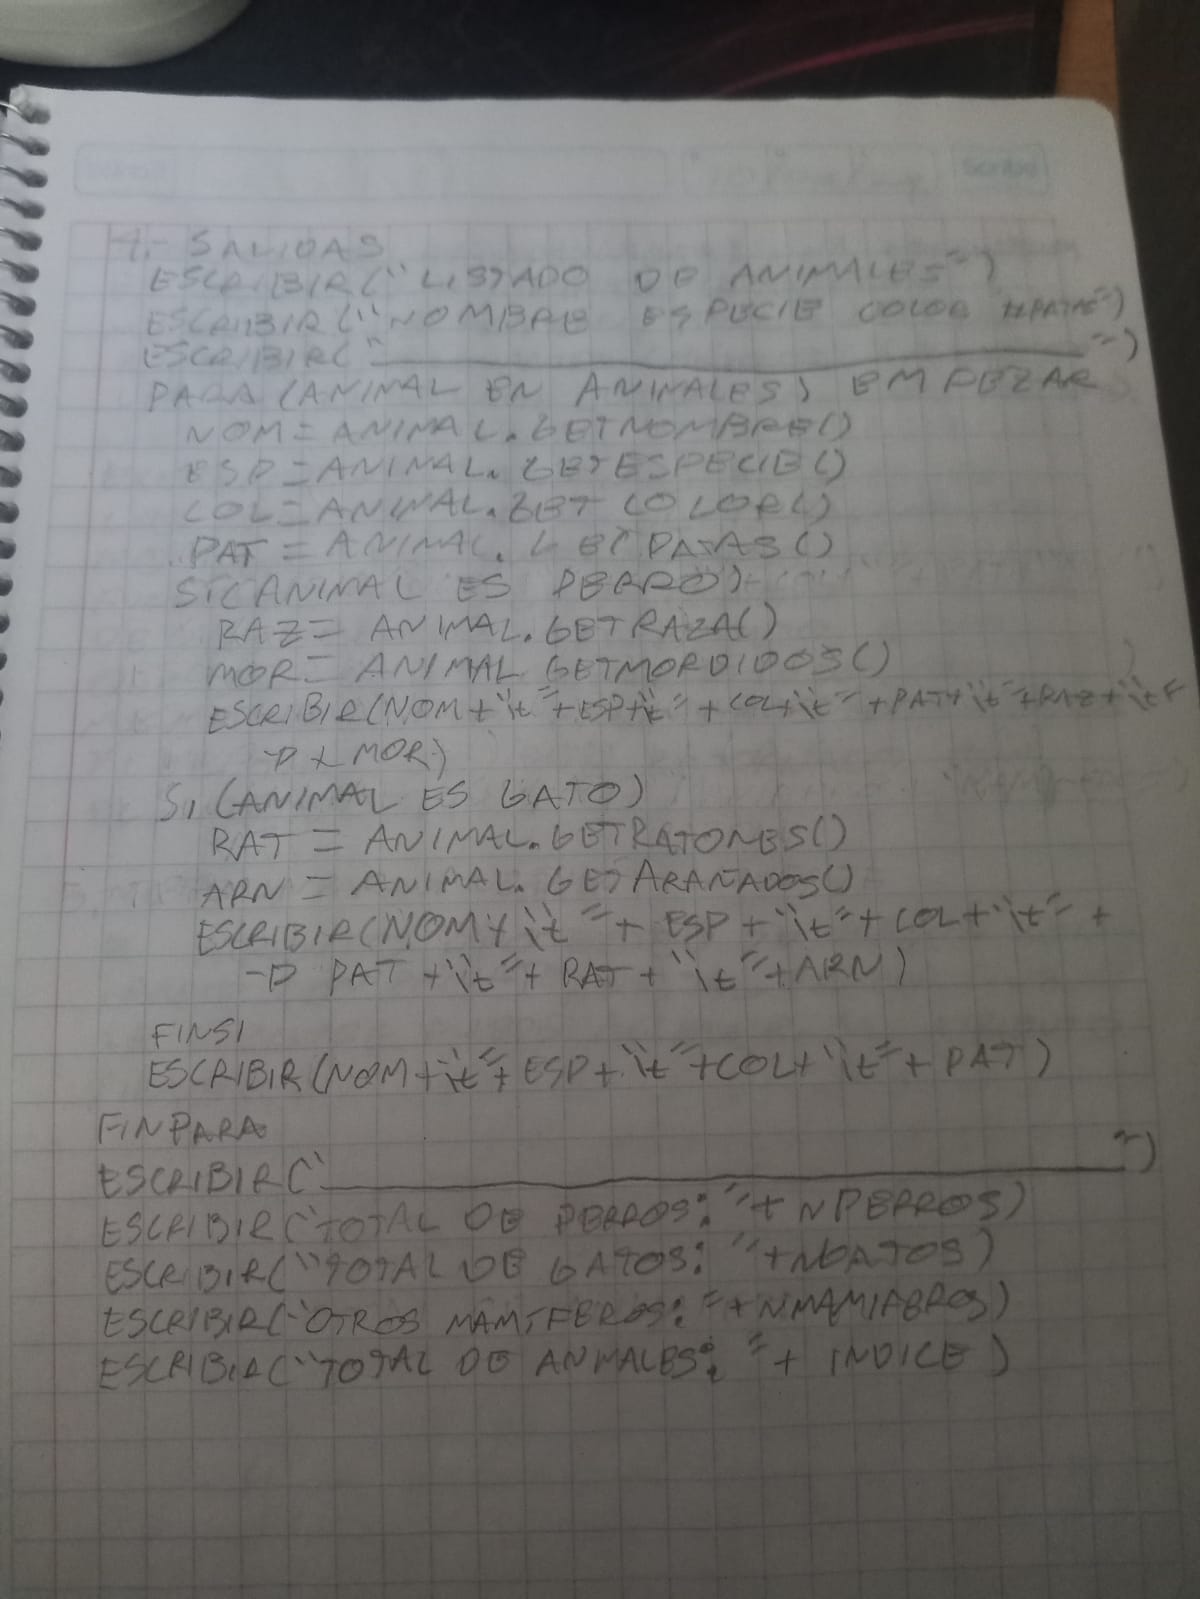 Scribe
4.- SALIDAS
ESCRIBIR("LISTADO DE ANIMALES")
ESCRIBIR("NOMBRE ESPECIE COLOR #PATAS")
ESCRIBIR("__________")
PARA (ANIMAL EN ANIMALES) EMPEZAR
NOM = ANIMAL.GETNOMBRE()
ESP = ANIMAL.GETESPECIE()
COL = ANIMAL.GETCOLOR()
PAT = ANIMAL.GETPATAS()
SI (ANIMAL ES PERRO)
RAZ = ANIMAL.GETRAZA()
MOR = ANIMAL GETMORDIDOS()
ESCRIBIR(NOM+"\t"+ESP+"\t"+COL+"\t"+PAT+"\t"+RAZ+"\t"
→ + MOR)
SI (ANIMAL ES GATO)
RAT = ANIMAL.GETRATONES()
ARN = ANIMAL.GETARAÑADOS()
ESCRIBIR(NOM+"\t"+ESP+"\t"+COL+"\t"+
→ PAT+"\t"+RAT+"\t"+ARN)
FINSI
ESCRIBIR(NOM+"\t"+ESP+"\t"+COL+"\t"+PAT)
FINPARA
ESCRIBIR("__________")
ESCRIBIR("TOTAL DE PERROS: "+NPERROS)
ESCRIBIR("TOTAL DE GATOS: "+NGATOS)
ESCRIBIR("OTROS MAMIFEROS: "+NMAMIFEROS)
ESCRIBIR("TOTAL DE ANIMALES: "+INDICE)